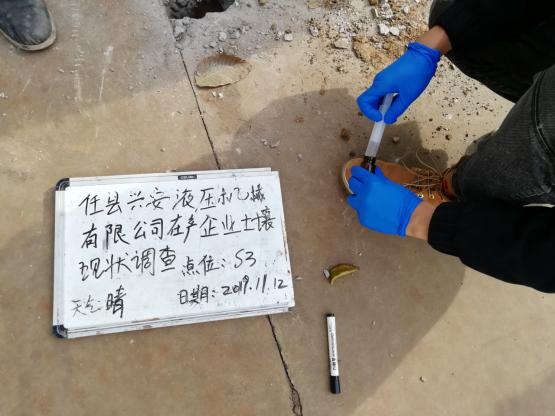 任县兴安液压机械
有限公司在产企业土壤
现状调查 点位：S3
天气晴 日期：2019.11.12